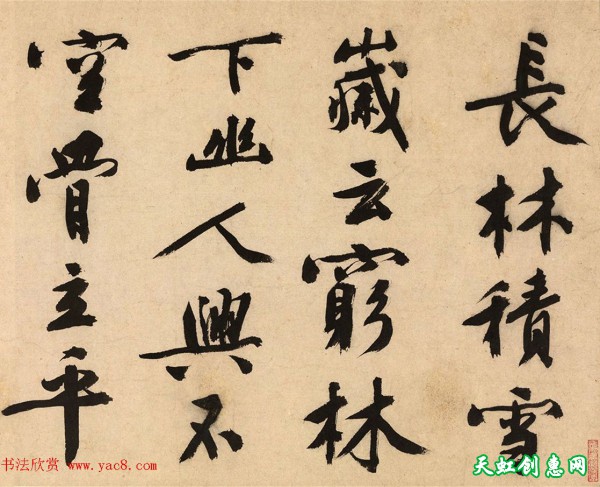 長林積雪
歲云窮林
下幽人興不
空骨立平
书法欣赏 www.yac8.com
天虹创惠网